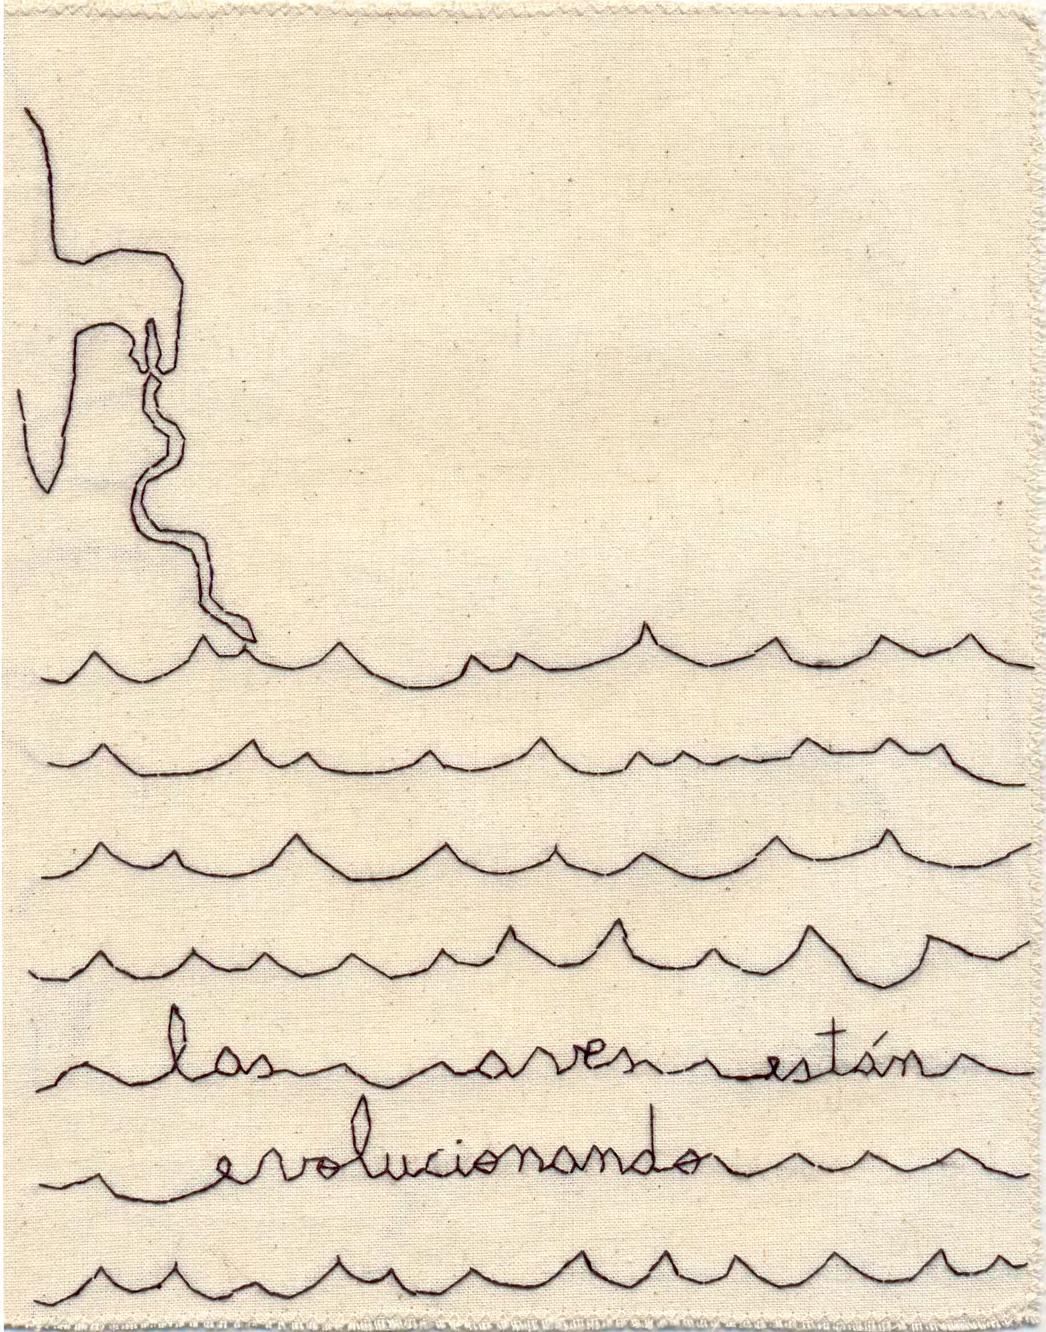 las aves están
evolucionando